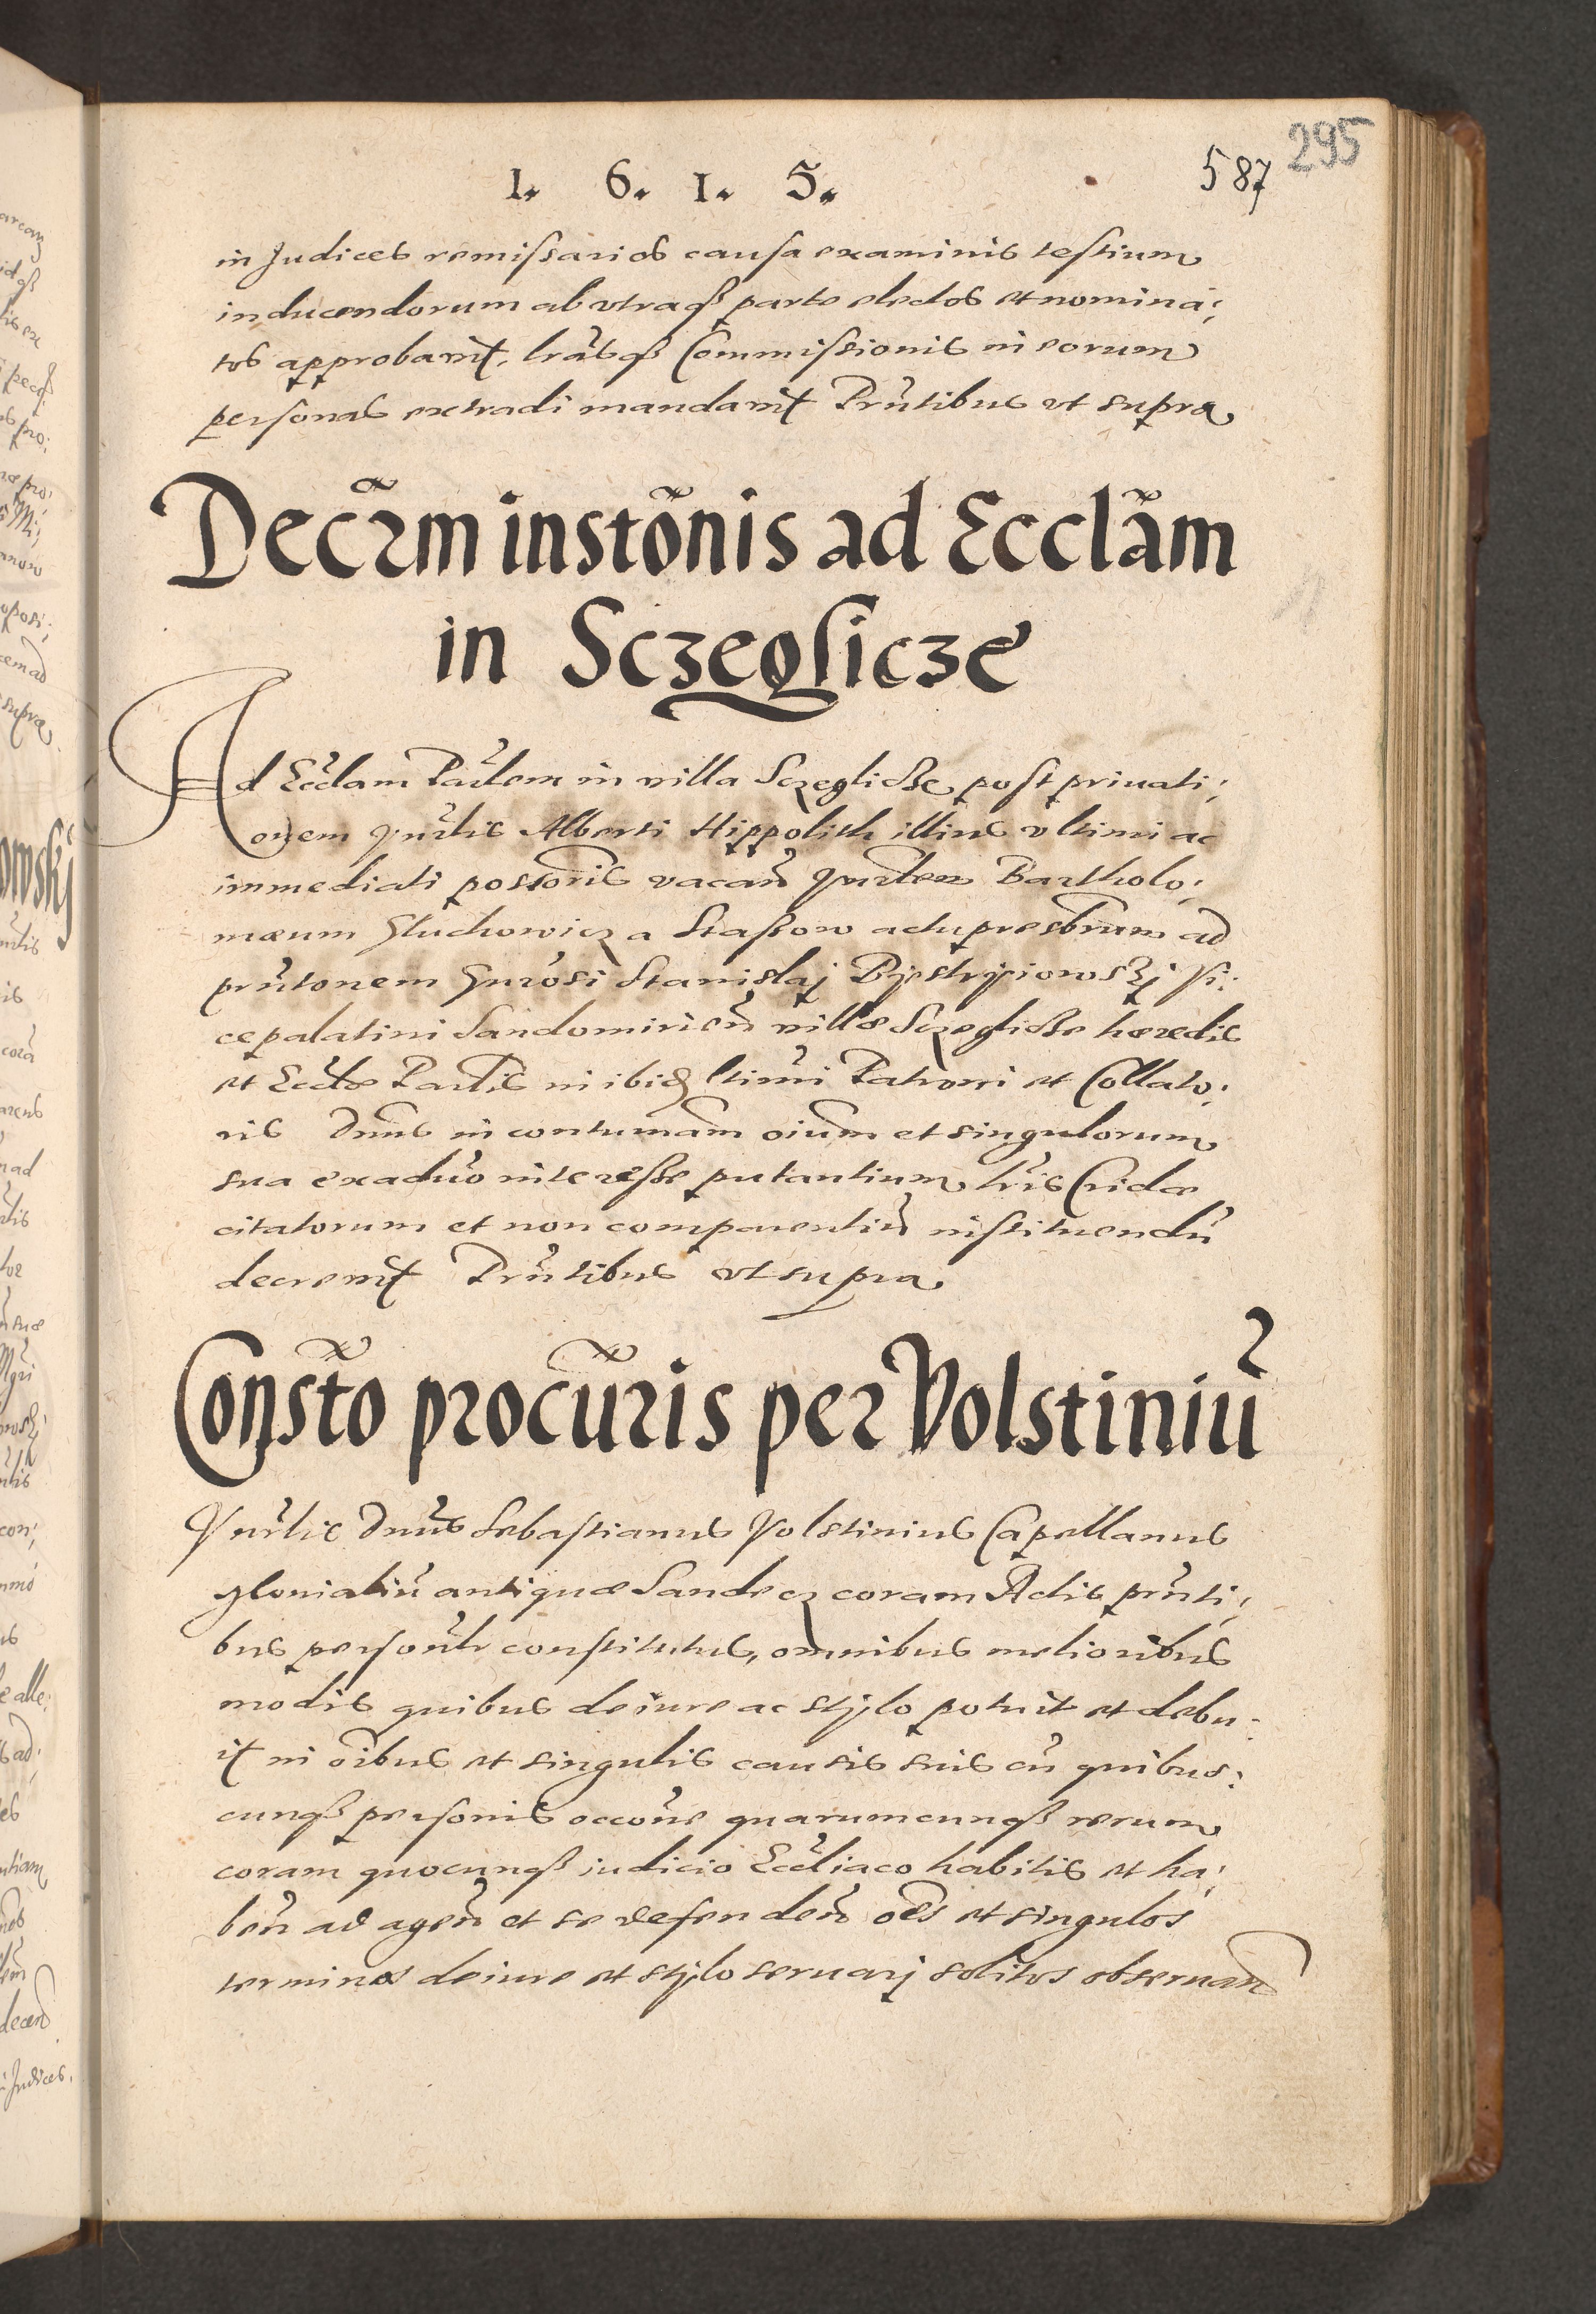 1. 6. 1. 5.
587
295
in Judices remissarios causa examinis testium
inducendorum ab vtraqß parte electos et nomina:
tos approbavit, lrãsqß Commissionis in eorum
personas extradi mandavit Prñtibus vt supra
Decr̃m instõnis ad Ecclãm
in Sczeglicze
Ad Eccl̃am Parl̃em in villa Sczeglicze post privati:
onem Vnr̃lis Alberti Hippolith illius vltimi ac
immediati possoris̃ vacañ Vnr̃lem Bartholo:
mæum Gluchowicz a Staßow actu presbr̃um ad
prñtonem Gnr̃osi Stanislaj Bystrzjciowskj Vi:
cepalatini Sandomirieñ villæ Sczeglicze hæredis
et Eccl̃æ Parl̃is in ibid. ltĩmi Patroni et Collato:
ris Dnũs in contumãm oiũm et singulorum
sua exaduo interesse putantium lr̃is Cridæ
citatorum et non comparentiũ instituendũ
decrevit Prñtibus vt supra
Consto͂ procũris per Volstiniũ
Vnr̃lis Dnũs Sebastianus Volstinius Capellanus
Monialiũ antiquæ Sandecz coram Actis prñti:
bus persoñlr constitutus, omnibus melioribus
modis quibus de iure ac stÿlo potuit et debu:
it in oĩbus et singulis causis suis cũ quibus:
cunqß personis occoñe quarumcunqß rerum
coram quocunqß iudicio Eccl̃iaco habitis et ha:
beñ ad ageñ et se defendeñ oẽs et singulos
terminos de iure et stÿlo seruarj solitos obseruañ